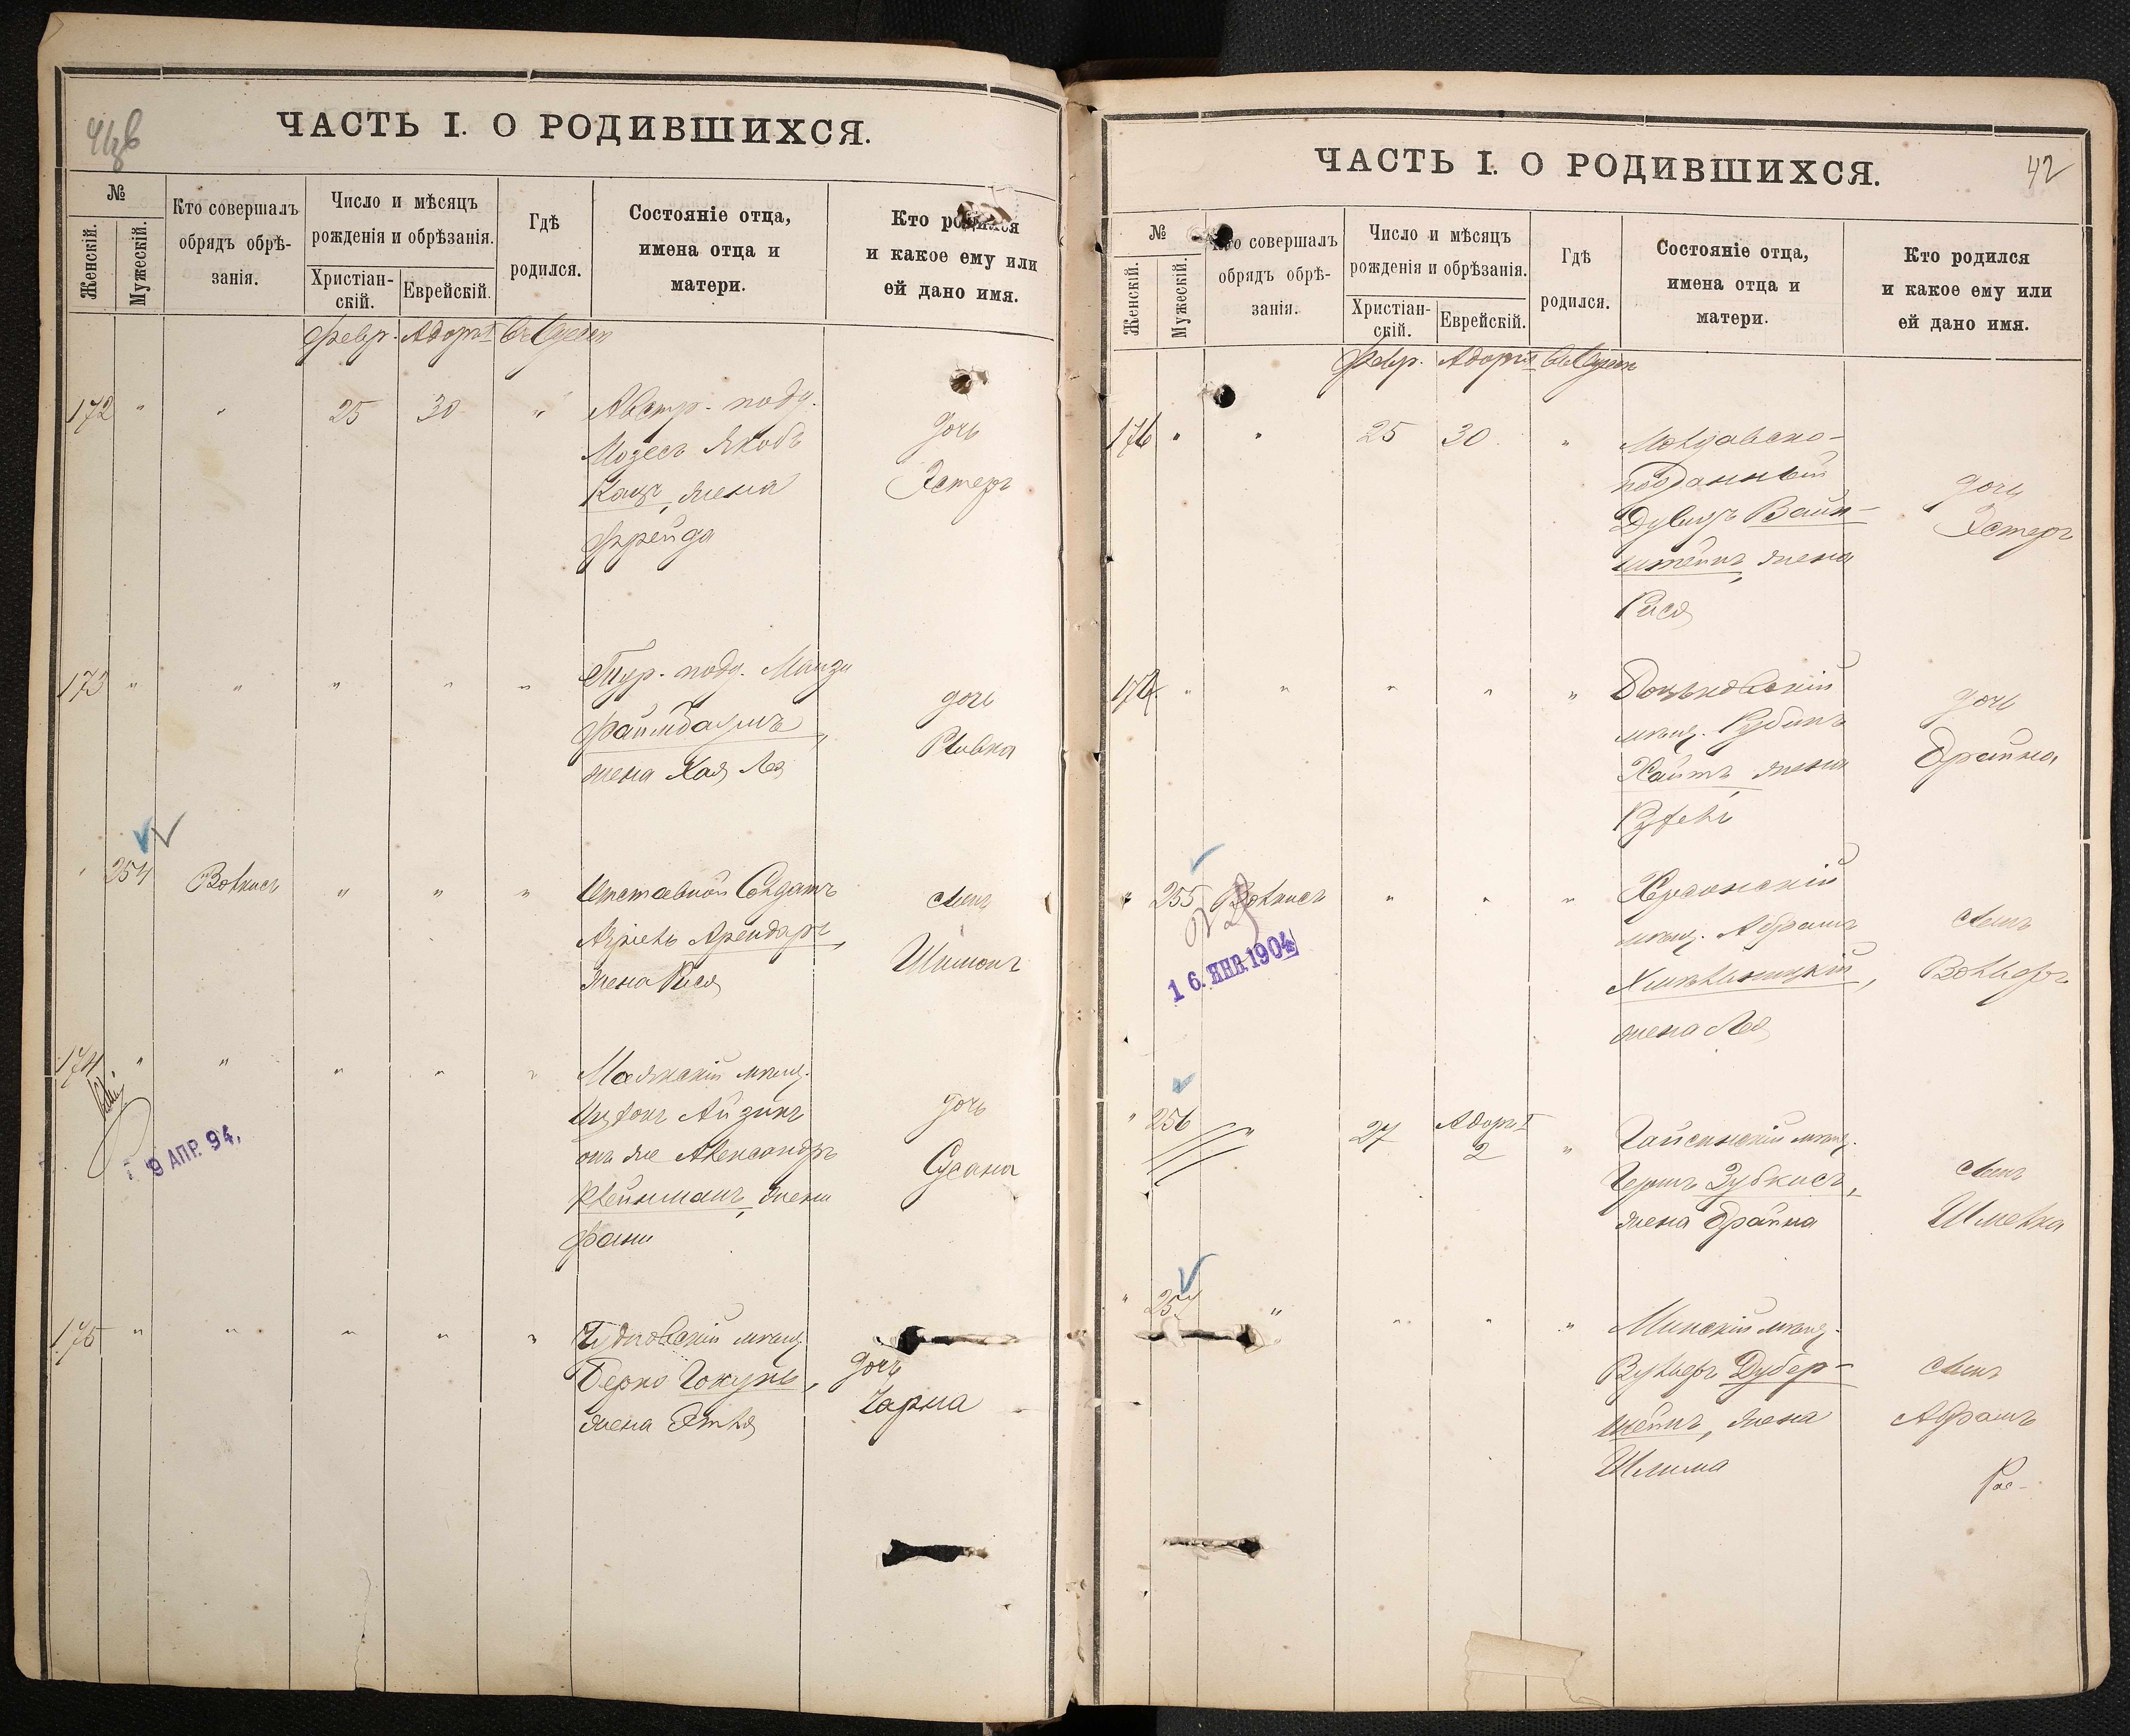 ЧАСТЬ I. О РОДИВШИХСЯ.
№
Женскій.
Мужескій.
Кто совершалъ
обрядъ обрѣ-
занія.
Число и мѣсяцъ
рожденія и обрѣзанія.
Христіан-
скій.
Еврейскій.
Гдѣ
родился.
Состояніе отца,
имена отца и
матери.
Кто родился
и какое ему или
ей дано имя.
Февр. Адоръ I въ Одессѣ
172 " " 25 30 " Австр. подд.
Мозесъ Якобъ
Кацъ, жена
Фрейда
дочь
Эстеръ
173 " " " " " Тур. подд.
Файнбаумъ,
жена Хая Лея
дочь
Ривка
" 254 Волкисъ " " " Отставной Солдатъ
Азріель Арендаръ,
жена Рися
сынъ
Шимонъ
174 " " " " " Маякскій мѣщ.
Айзикъ
онъ же Александръ
Клейнманъ, жена
Фани
дочь
Сусана
9 АПР. 94.
175 " " " " " Чудновскій мѣщ.
Берко Гокунь,
жена Этля
дочь
Чарна
ЧАСТЬ I. О РОДИВШИХСЯ.
42
№
Женскій.
Мужескій.
Кто совершалъ
обрядъ обрѣ-
занія.
Число и мѣсяцъ
рожденія и обрѣзанія.
Христіан-
скій.
Еврейскій.
Гдѣ
родился.
Состояніе отца,
имена отца и
матери.
Кто родился
и какое ему или
ей дано имя.
Февр. Адоръ I въ Одессѣ
176 " " 25 30 " Молдавско-
подданный
Дувидъ Вайн-
штейнъ, жена
Рися
дочь
Эстеръ
177 " " " " "
мѣщ. Рубинъ
Хаитъ жена
Рухель
дочь
Брайна
" 255 Волкисъ " " " Херсонскій
мѣщ. Абрамъ
Хмѣльницкій,
жена Лея
сынъ
Вольфъ
16. ЯНВ. 1904
" 256 " 27 Адоръ I
2 " Гайсинскій мѣщ.
Гершъ Зубкисъ,
жена Брайна
сынъ
Шмелка
" 257 " " " " Минскій мѣщ.
Вульфъ Дубер-
штейнъ, жена
Шлима
сынъ
Абрамъ